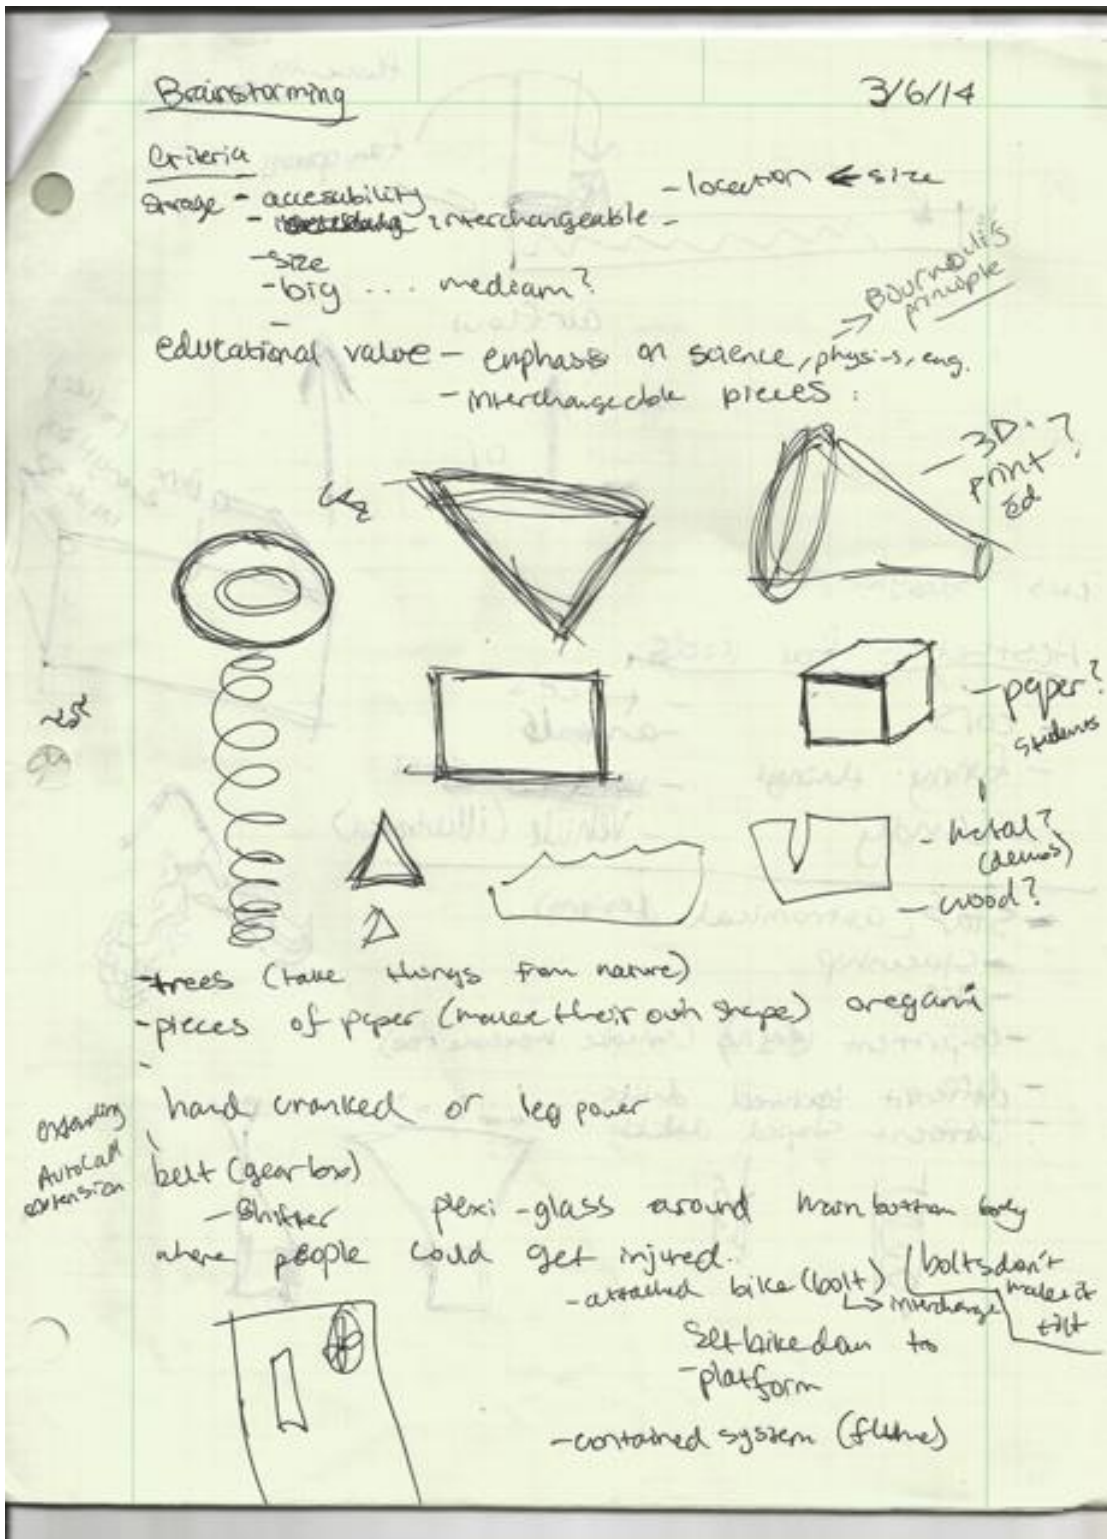 Brainstorming 3/6/14
Criteria
Storage - accesability - location ← size
- interchangeable -
- size
- big ... mediam?
→ Bournouli's
principle
educational value - emphasis on science, physics, eng.
- interchangeable pieces :
- 3D
print?
ed
- paper?
students
- metal?
(demos)
- wood?
- trees (take things from nature)
- pieces of paper (make their own shape) oregami
hand cranked or leg power
AutoCad
extension
belt (gear box)
- Shifter plexi-glass around main bottom body
where people could get injured.
- attached bike (bolt) bolts don't
↳ interchange make it
tilt
Set bike down to
- platform
- contained system (flume)